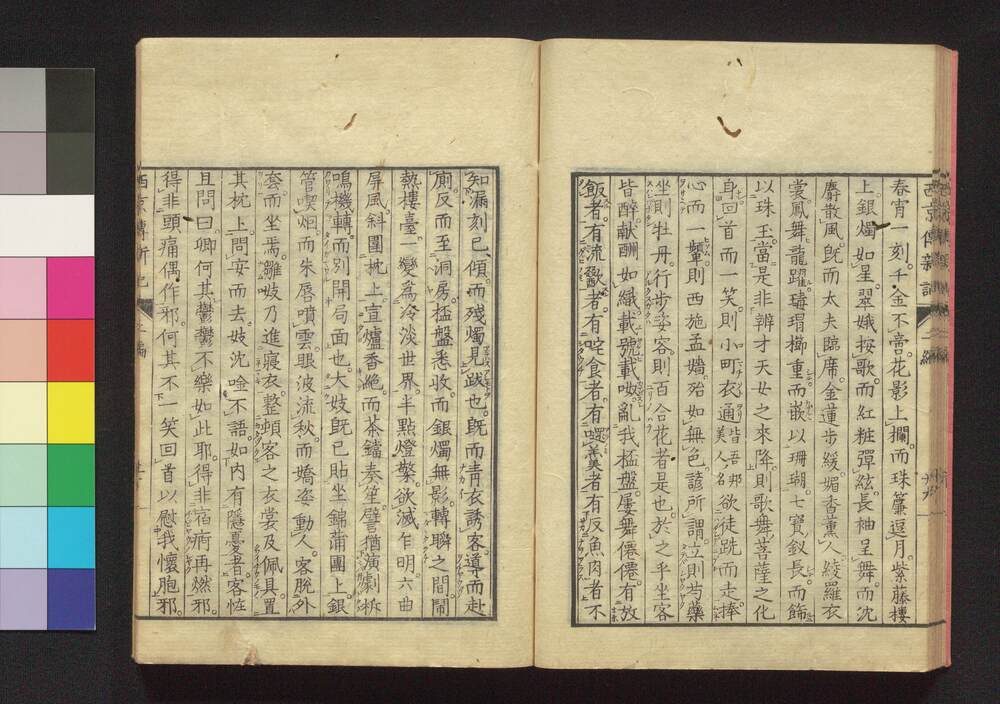 春宵一刻千金不啻花影上欄而珠簾逗月紫藤樓
上銀燭如星翠娥按歌而紅粧彈絃長袖呈舞而沈
麝散風既而太夫臨席金蓮步緩媚香薰人綾羅衣
裳鳳舞龍躍瑇瑁櫛重而嵌以珊瑚七寶釵長而飾
以珠玉當是非辨才天女之來降則歌舞菩薩之化
身回首而一笑則小町衣通皆吾邦美人名欲徒跣而走捧
心而一顰則西施孟嬙殆如無色諺所謂立則芍藥
坐則牡丹行步委容則百合花者是也於之乎坐客
皆醉献酬如織載號載呶亂我桮盤屢舞僊僊有放
飯者有流歠者有咤食者有嚃羹者有反魚肉者不
知漏刻已傾而殘燭見跋也既而青衣誘客導而赴
廁反而至洞房桮盤悉收而銀燭無影轉瞬之間鬧
熱樓臺一變為冷淡世界半點燈檠欲滅乍明六曲
屏風斜圍枕上宣爐香絕而茶鐺奏笙譬猶演劇柝
鳴機轉而別開局面也大妓既已貼坐錦蒲團上銀
管喫烟而朱唇噴雲眼波流秋而嬌姿動人客脫外
套而坐焉雛妓乃進寢衣整頓客之衣裳及佩具置
其枕上問安而去妓沈唫不語如內有隱憂者客恠
且問曰卿何其鬱鬱不樂如此耶得非宿痾再燃邪
得非頭痛偶作邪何其不一笑回首以慰我懷胞邪